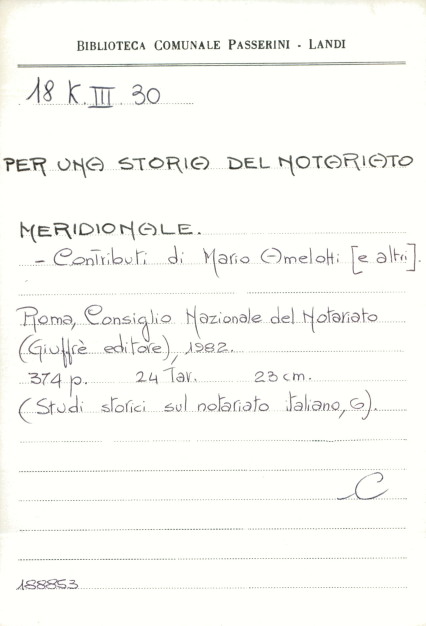 BIBLIOTECA COMUNALE PASSERINI - LANDI
18 K. III. 30
PER UNA STORIA DEL NOTARIATO
MERIDIONALE.
- Contributi di Mario Amelotti [e altri].
Roma, Consiglio Nazionale del Notariato
(Giuffrè editore), 1982.
374 p. 24 Tav. 23 cm.
(Studi storici sul notariato italiano, 6).
C
188853